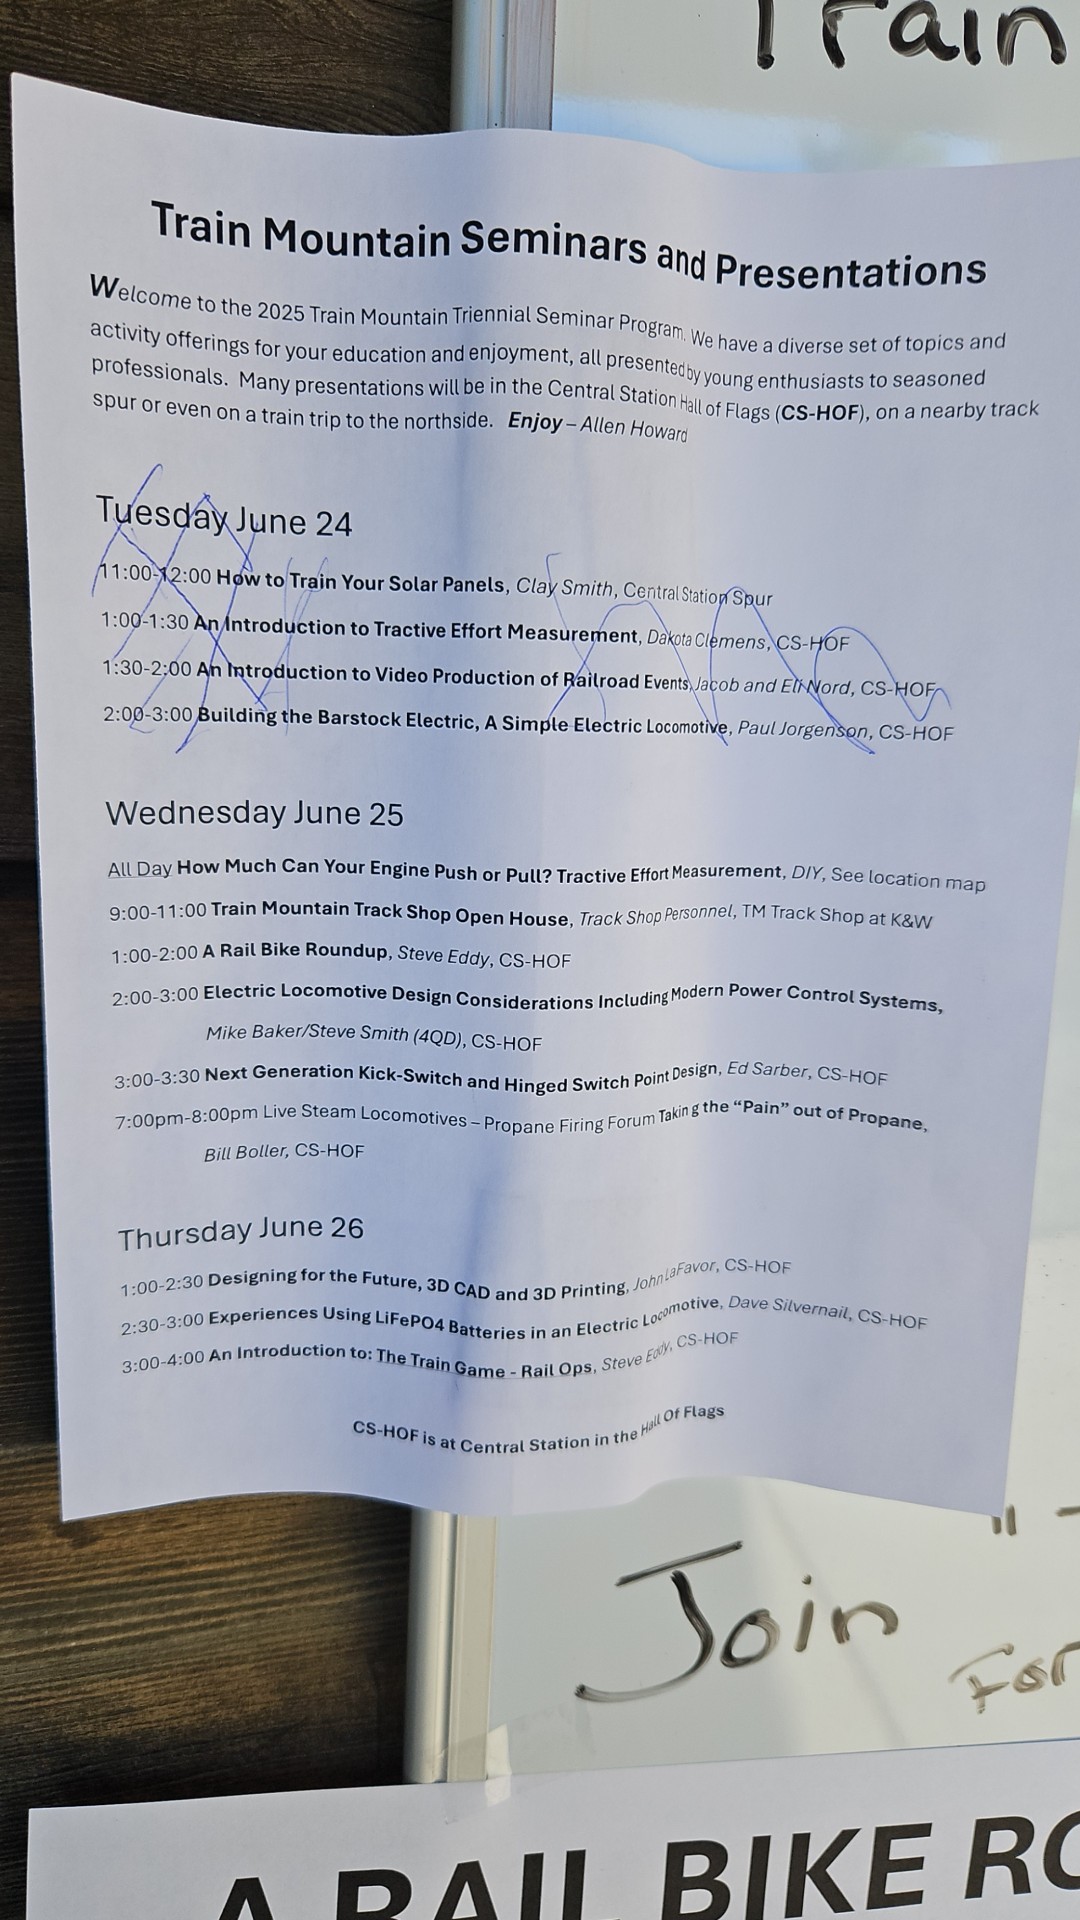 Train
Train Mountain Seminars and Presentations
Welcome to the 2025 Train Mountain Triennial Seminar Program. We have a diverse set of topics and
activity offerings for your education and enjoyment, all presented by young enthusiasts to seasoned
professionals. Many presentations will be in the Central Station Hall of Flags (CS-HOF), on a nearby track
spur or even on a train trip to the northside. Enjoy – Allen Howard
Tuesday June 24
11:00-12:00 How to Train Your Solar Panels, Clay Smith, Central Station Spur
1:00-1:30 An Introduction to Tractive Effort Measurement, Dakota Clemens, CS-HOF
1:30-2:00 An Introduction to Video Production of Railroad Events, Jacob and Eli Nord, CS-HOF
2:00-3:00 Building the Barstock Electric, A Simple Electric Locomotive, Paul Jorgenson, CS-HOF
Wednesday June 25
All Day How Much Can Your Engine Push or Pull? Tractive Effort Measurement, DIY, See location map
9:00-11:00 Train Mountain Track Shop Open House, Track Shop Personnel, TM Track Shop at K&W
1:00-2:00 A Rail Bike Roundup, Steve Eddy, CS-HOF
2:00-3:00 Electric Locomotive Design Considerations Including Modern Power Control Systems,
Mike Baker/Steve Smith (4QD), CS-HOF
3:00-3:30 Next Generation Kick-Switch and Hinged Switch Point Design, Ed Sarber, CS-HOF
7:00pm-8:00pm Live Steam Locomotives – Propane Firing Forum Taking the “Pain” out of Propane,
Bill Boller, CS-HOF
Thursday June 26
1:00-2:30 Designing for the Future, 3D CAD and 3D Printing, John LaFavor, CS-HOF
2:30-3:00 Experiences Using LiFePO4 Batteries in an Electric Locomotive, Dave Silvernail, CS-HOF
3:00-4:00 An Introduction to: The Train Game - Rail Ops, Steve Eddy, CS-HOF
CS-HOF is at Central Station in the Hall Of Flags
Join
For
A RAIL BIKE RO